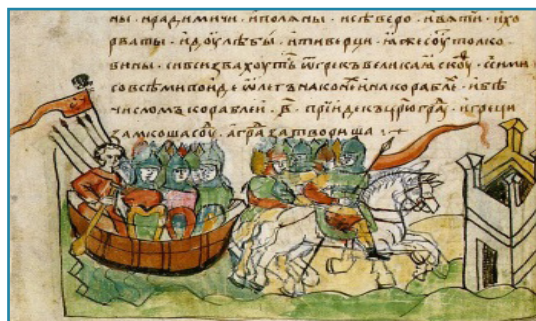 ны · и радимичи · и поляны · и сѣверо · и вяти · и хо
рваты · и доулѣбы · и тиверци · ꙗже соу толко
вины · си вси звахоуть ѿ грекъ великаꙗ скоуѳ · с сими
со всѣми поиде ѡлегъ на коне и на кораблѣ · и бѣ
числомъ кораблей · в҃ · прїиде къ цр҃югра · и греци
замкоша соу · а гра затвориша